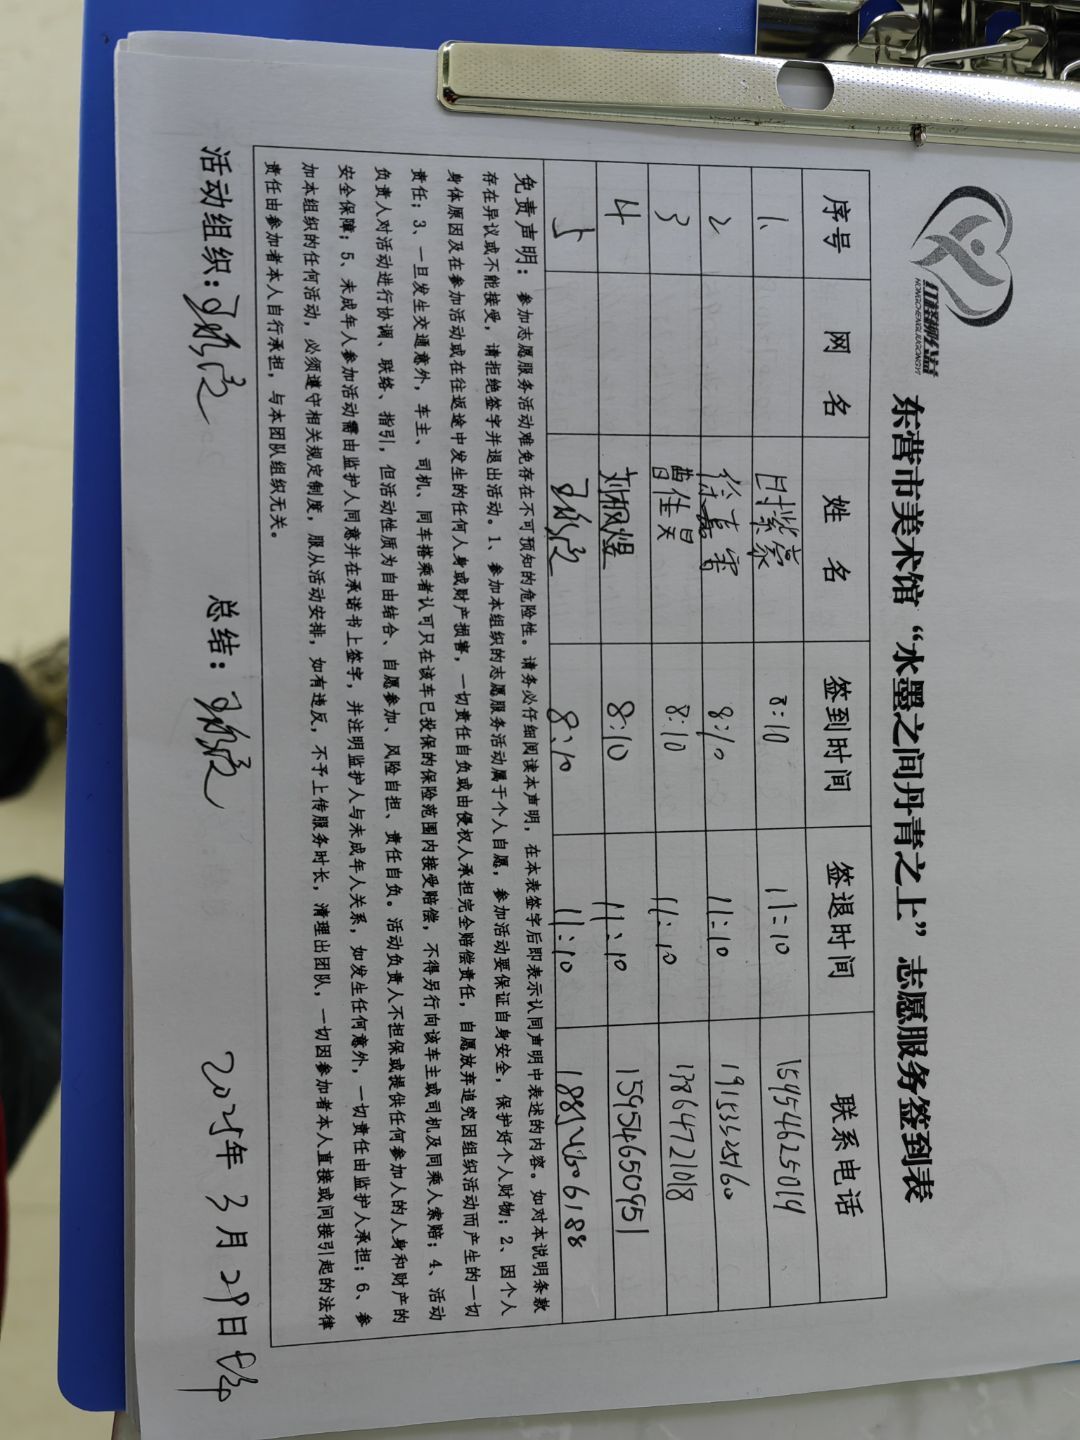 红蜂蝌公益
HONGCHENGLIAGONGYI
东营市美术馆“水墨之间丹青之上”志愿服务签到表
序号 网 名 姓 名 签到时间 签退时间 联系电话
1、 8:10 11:10 15954625019
2 徐嘉雪 8:10 11:10 19153525160
3 曹佳昊 8:10 11:10 17864721018
4 刘枫煜 8:10 11:10 15954650951
5 8:10 11:10 18854606188
免责声明：参加志愿服务活动难免存在不可预知的危险性。请务必仔细阅读本声明，在本表签字后即表示认同声明中表述的内容。如对本说明条款
存在异议或不能接受，请拒绝签字并退出活动。1、参加本组织的志愿服务活动属于个人自愿，参加活动要保证自身安全，保护好个人财物；2、因个人
身体原因及在参加活动或在往返途中发生的任何人身或财产损害，一切责任自负或由侵权人承担完全赔偿责任，自愿放弃追究因组织活动而产生的一切
责任；3、一旦发生交通意外，车主、司机、同车搭乘者认可只在该车已投保的保险范围内接受赔偿，不得另行向该车主或司机及同乘人索赔；4、活动
负责人对活动进行协调、联络、指引，但活动性质为自由结合、自愿参加、风险自担、责任自负。活动负责人不担保或提供任何参加人的人身和财产的
安全保障；5、未成年人参加活动需由监护人同意并在承诺书上签字，并注明监护人与未成年人关系，如发生任何意外，一切责任由监护人承担；6、参
加本组织的任何活动，必须遵守相关规定制度，服从活动安排，如有违反，不予上传服务时长，清理出团队，一切因参加者本人直接或间接引起的法律
责任由参加者本人自行承担，与本团队组织无关。
活动组织： 总结： 2025年3月29日